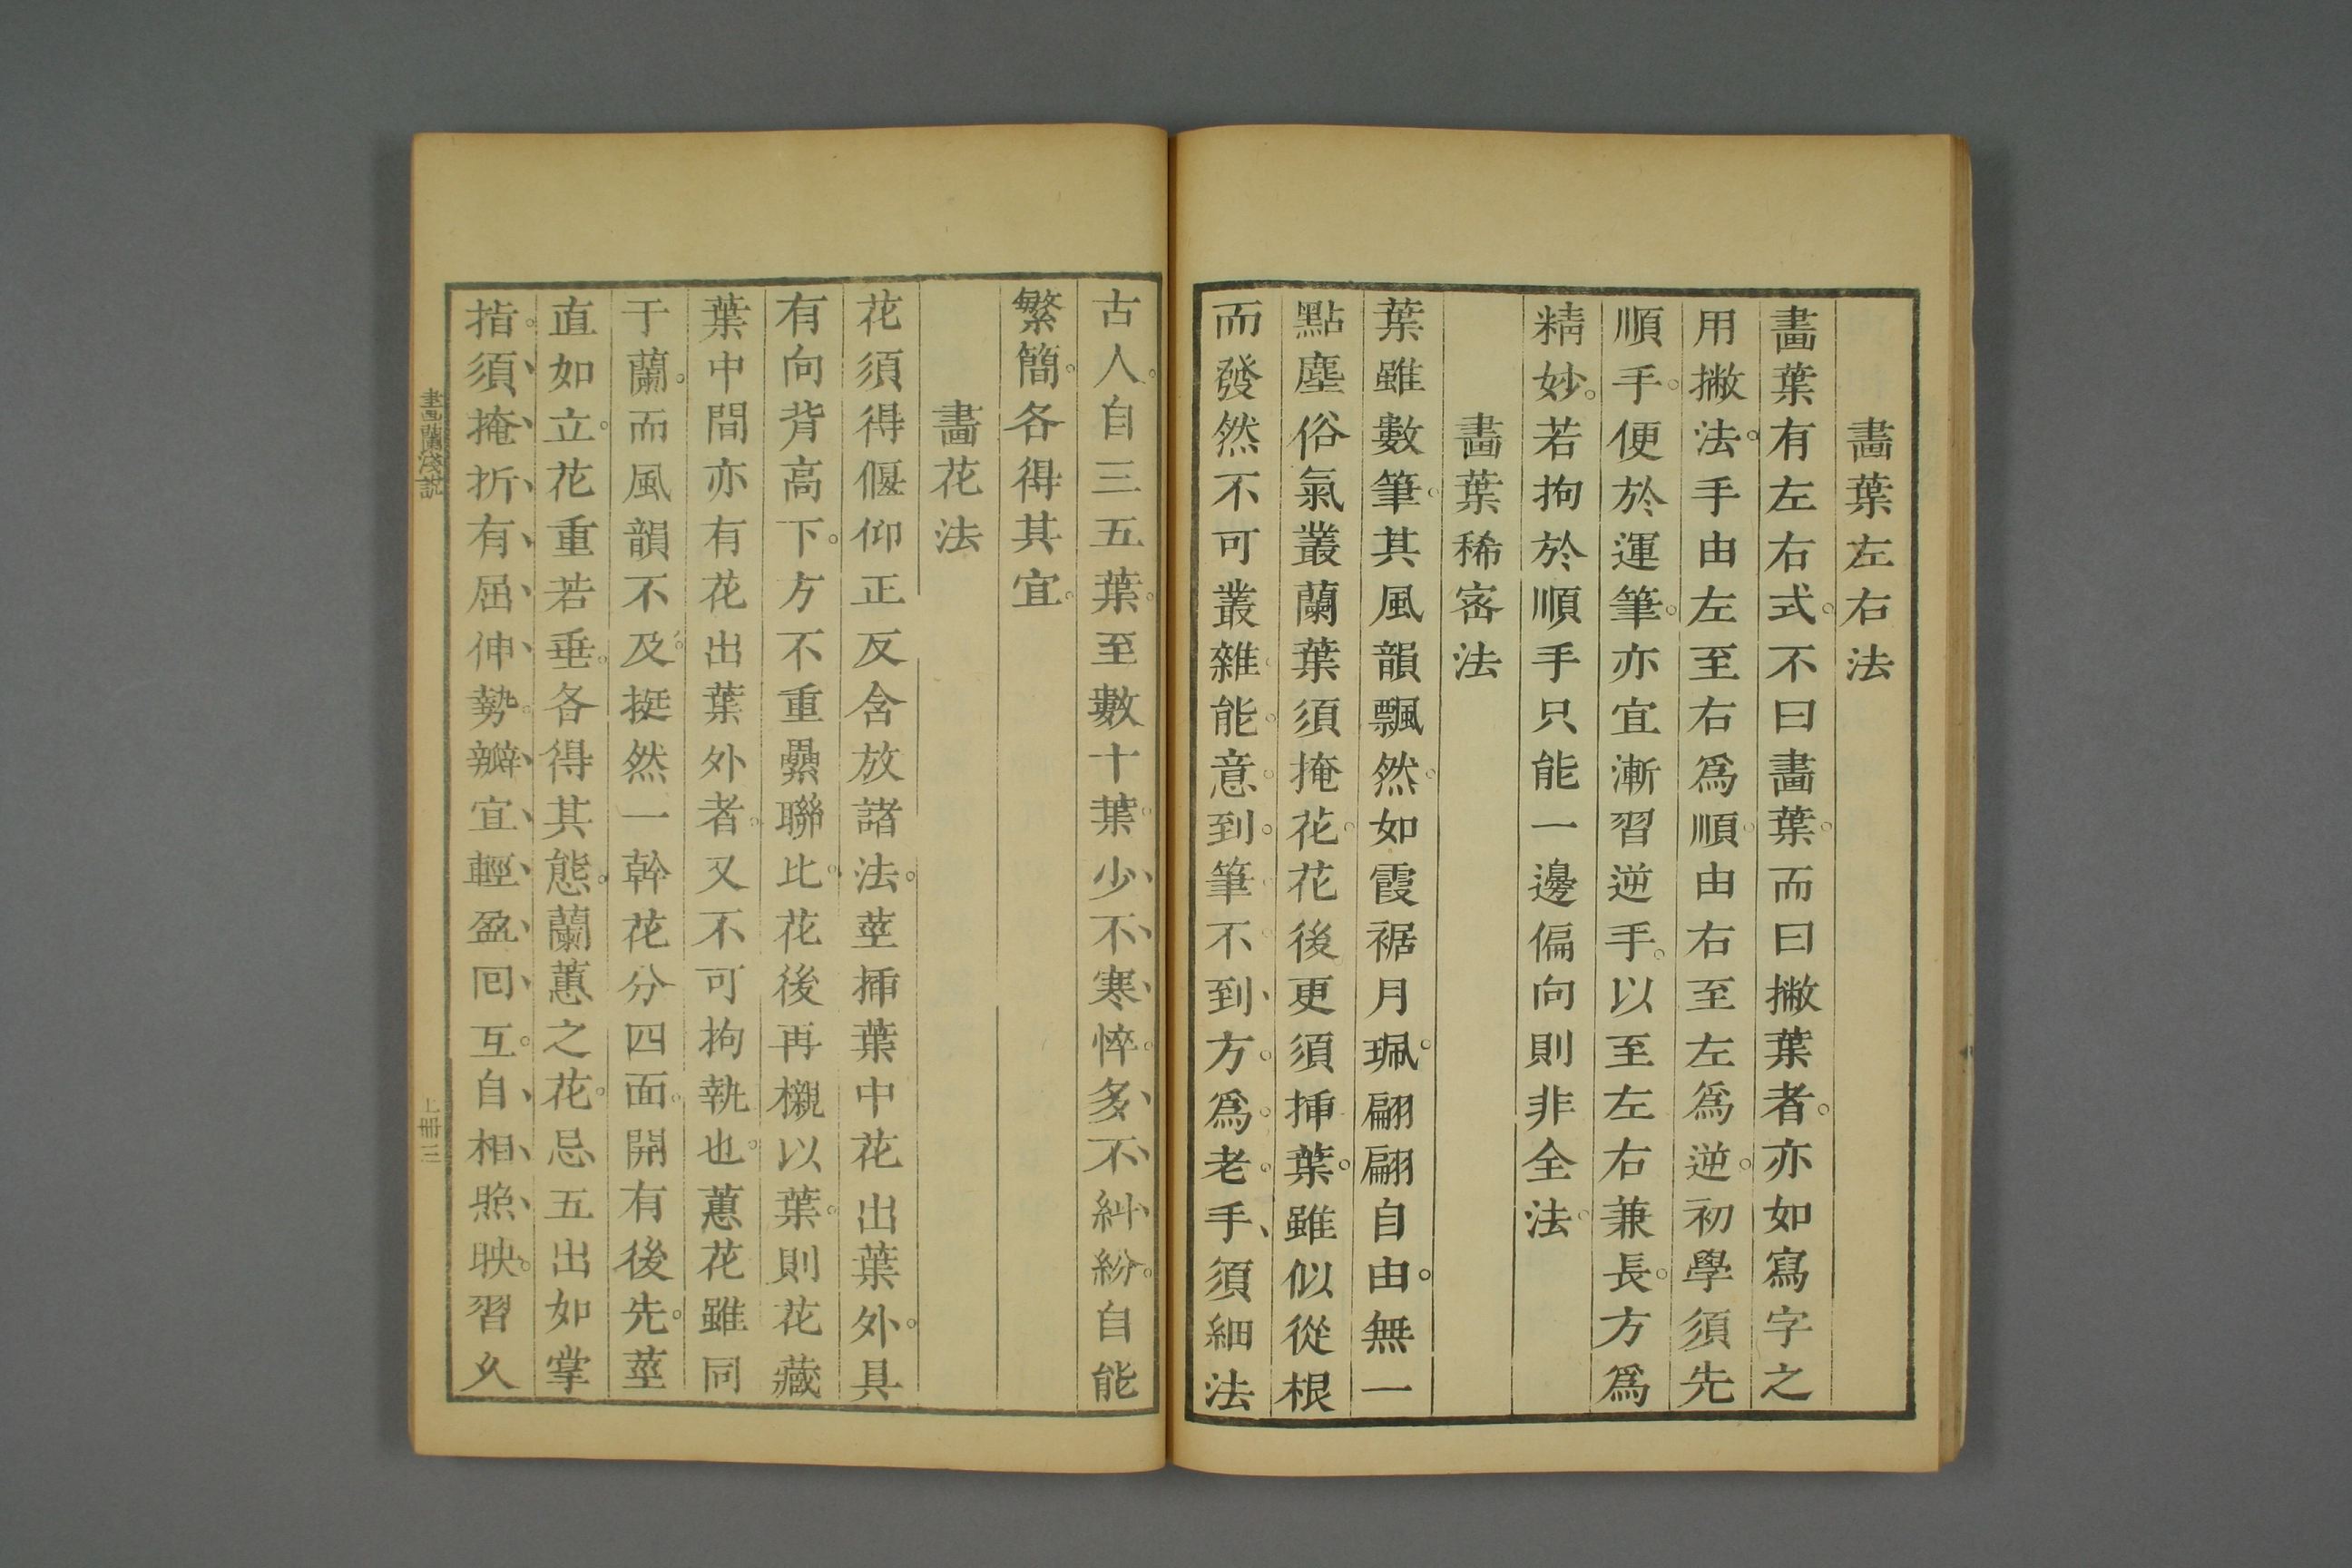 畫葉左右法
畫葉有左右式不曰畫葉而曰撇葉者亦如寫字之
用撇法手由左至右爲順由右至左爲逆初學須先
順手便於運筆亦宜漸習逆手以至左右兼長方爲
精妙若拘於順手只能一邊偏向則非全法
畫葉稀密法
葉雖數筆其風韻飄然如霞裾月珮翩翩自由無一
點塵俗氣叢蘭葉須掩花花後更須揷葉雖似從根
而發然不可叢雜能意到筆不到方爲老手須細法
古人自三五葉至數十葉少不寒悴多不糾紛自能
繁簡各得其宜
畫花法
花須得偃仰正反含放諸法莖揷葉中花出葉外具
有向背高下方不重纍聯比花後再櫬以葉則花藏
葉中間亦有花出葉外者又不可拘執也蕙花雖同
于蘭而風韻不及挺然一幹花分四面開有後先莖
直如立花重若垂各得其態蘭蕙之花忌五出如掌
指須掩折有屈伸勢瓣宜輕盈回互自相照映習久
畫蘭淺說
上冊三